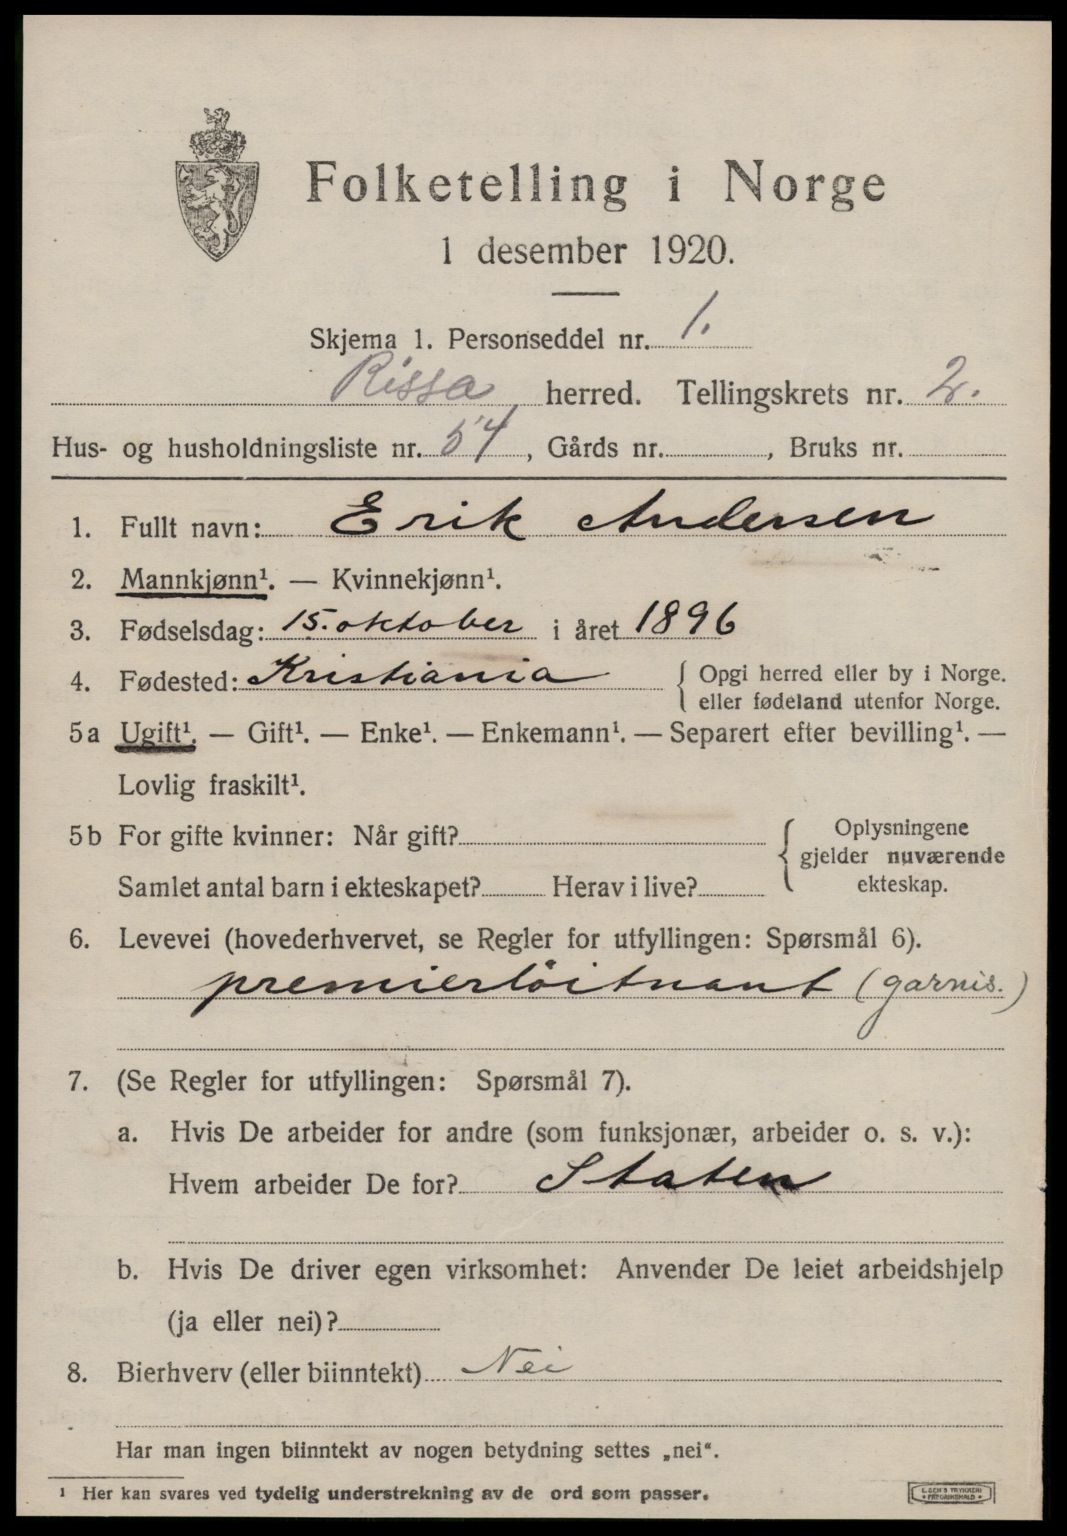 Folketelling i Norge
1 desember 1920.
Skjema 1. Personseddel nr. 1.
Rissa herred. Tellingskrets nr. 2.
Hus- og husholdningsliste nr. 54, Gårds nr. , Bruks nr.
1. Fullt navn: Erik Andersen
2. Mannkjønn¹. — Kvinnekjønn¹.
3. Fødselsdag: 15. oktober i året 1896
4. Fødested: Kristiania { Opgi herred eller by i Norge.
eller fødeland utenfor Norge.
5a Ugift¹. — Gift¹. — Enke¹. — Enkemann¹. — Separert efter bevilling¹. —
Lovlig fraskilt¹.
5b For gifte kvinner: Når gift? { Oplysningene
gjelder nuværende
Samlet antal barn i ekteskapet? Herav i live? ekteskap.
6. Levevei (hovederhvervet, se Regler for utfyllingen: Spørsmål 6).
premierløitnant (garnis.)
7. (Se Regler for utfyllingen: Spørsmål 7).
a. Hvis De arbeider for andre (som funksjonær, arbeider o. s. v.):
Hvem arbeider De for? Staten
b. Hvis De driver egen virksomhet: Anvender De leiet arbeidshjelp
(ja eller nei)?
8. Bierhverv (eller biinntekt) Nei
Har man ingen biinntekt av nogen betydning settes „nei“.
¹ Her kan svares ved tydelig understrekning av de ord som passer.